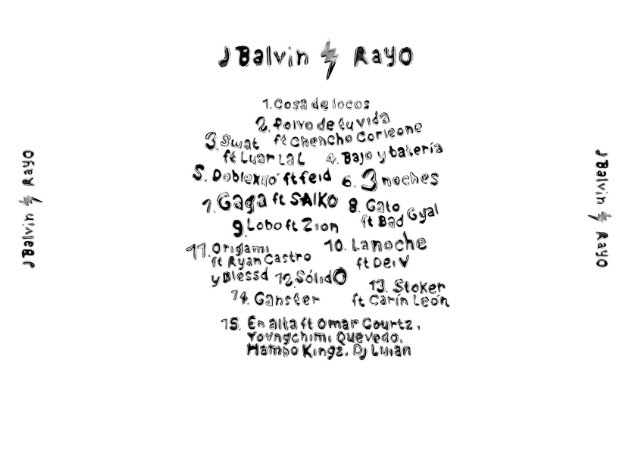 J Balvin ⚡ Rayo
1. Cosa de locos
2. Polvo de tu vida
ft Chencho Corleone
3 Swat
ft Luar La L
4. Bajo y batería
5. Doblexxó ft feid
6. 3 noches
7. Gaga ft SAIKO
8. Gato
ft Bad Gyal
9. Lobo ft Zion
10. La noche
ft Dei V
11. Origami
ft Ryan Castro
y Blessd
12. Sólido
13. Stoker
ft Carín León
14. Ganster
15. En alta ft Omar Courtz,
Yovngchimi, Quevedo,
Mambo Kingz, Dj Luian
J Balvin ⚡ Rayo
J Balvin ⚡ Rayo